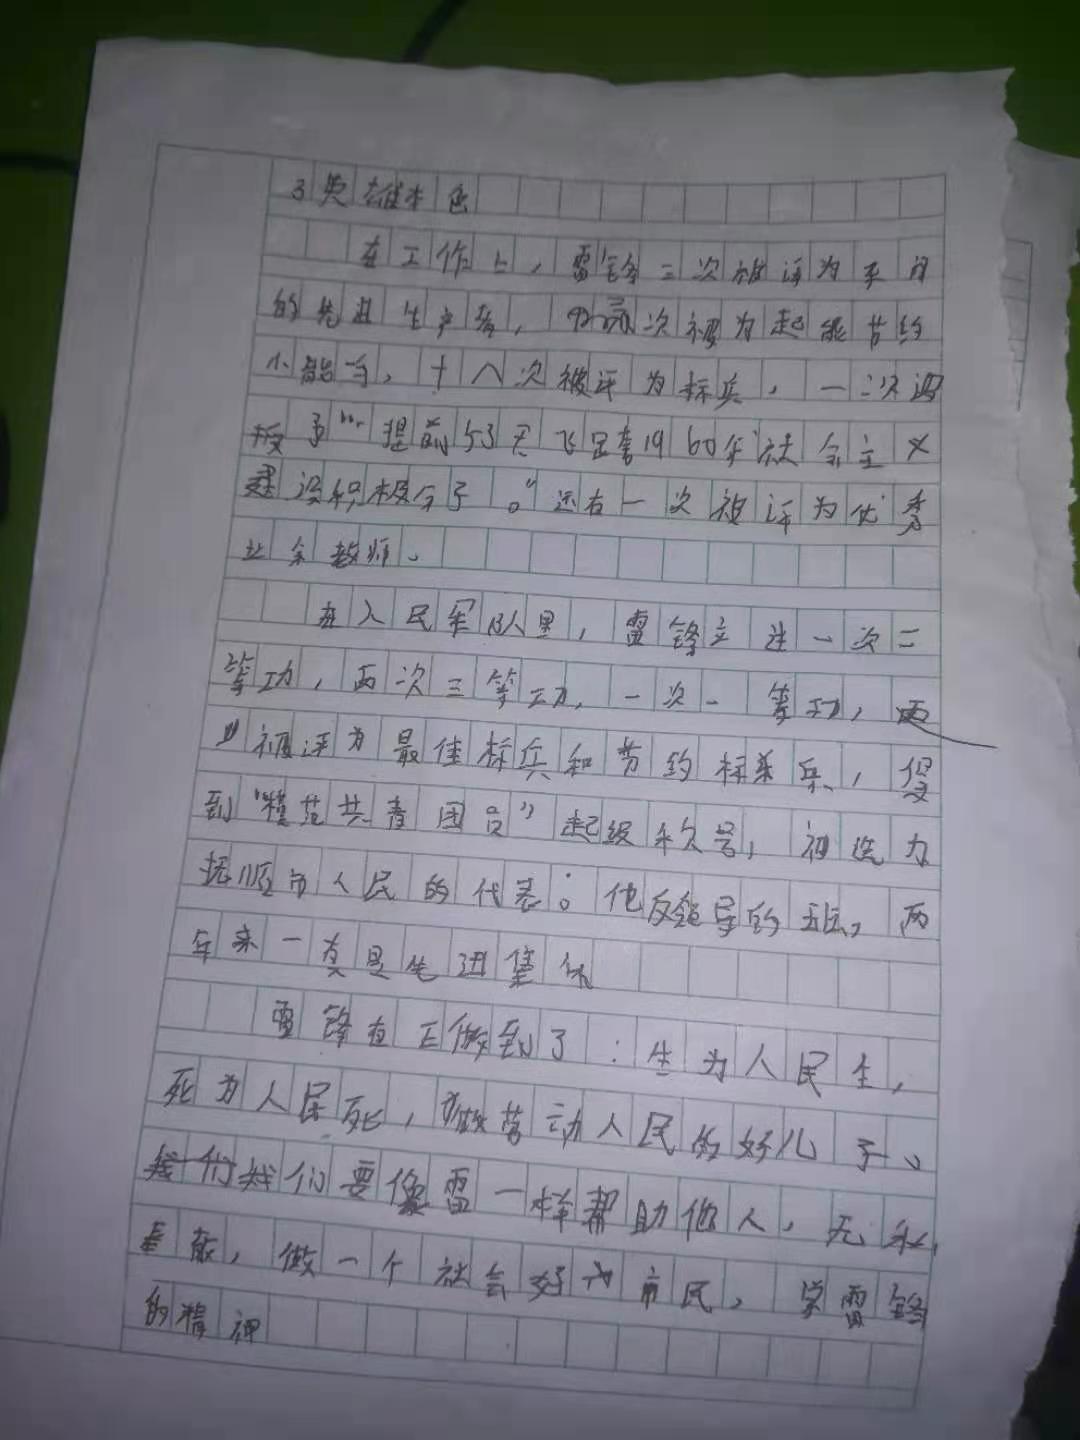 3英雄本色
在工作上，雷锋三次被评为车间
的先进生产者，次被为起能节约
小能手，十八次被评为标兵，一次
了"提前53天飞足1960年社会主义
建设积极分子。"还有一次被评为优秀
业余教师。
在人民军队里，雷锋立过一次二
等功，两次三等功，一次一等功，
被评为最佳标兵和节约标兵，
到"模范共青团员"起级称号，被选为
抚顺市人民的代表。他反领导的班，两
年来一直是先进集体
雷锋真正做到了：生为人民生，
死为人民死，做劳动人民的好儿子、
我们要像雷一样帮助他人，无私
奉献，做一个社会好市民，学雷锋
的精神